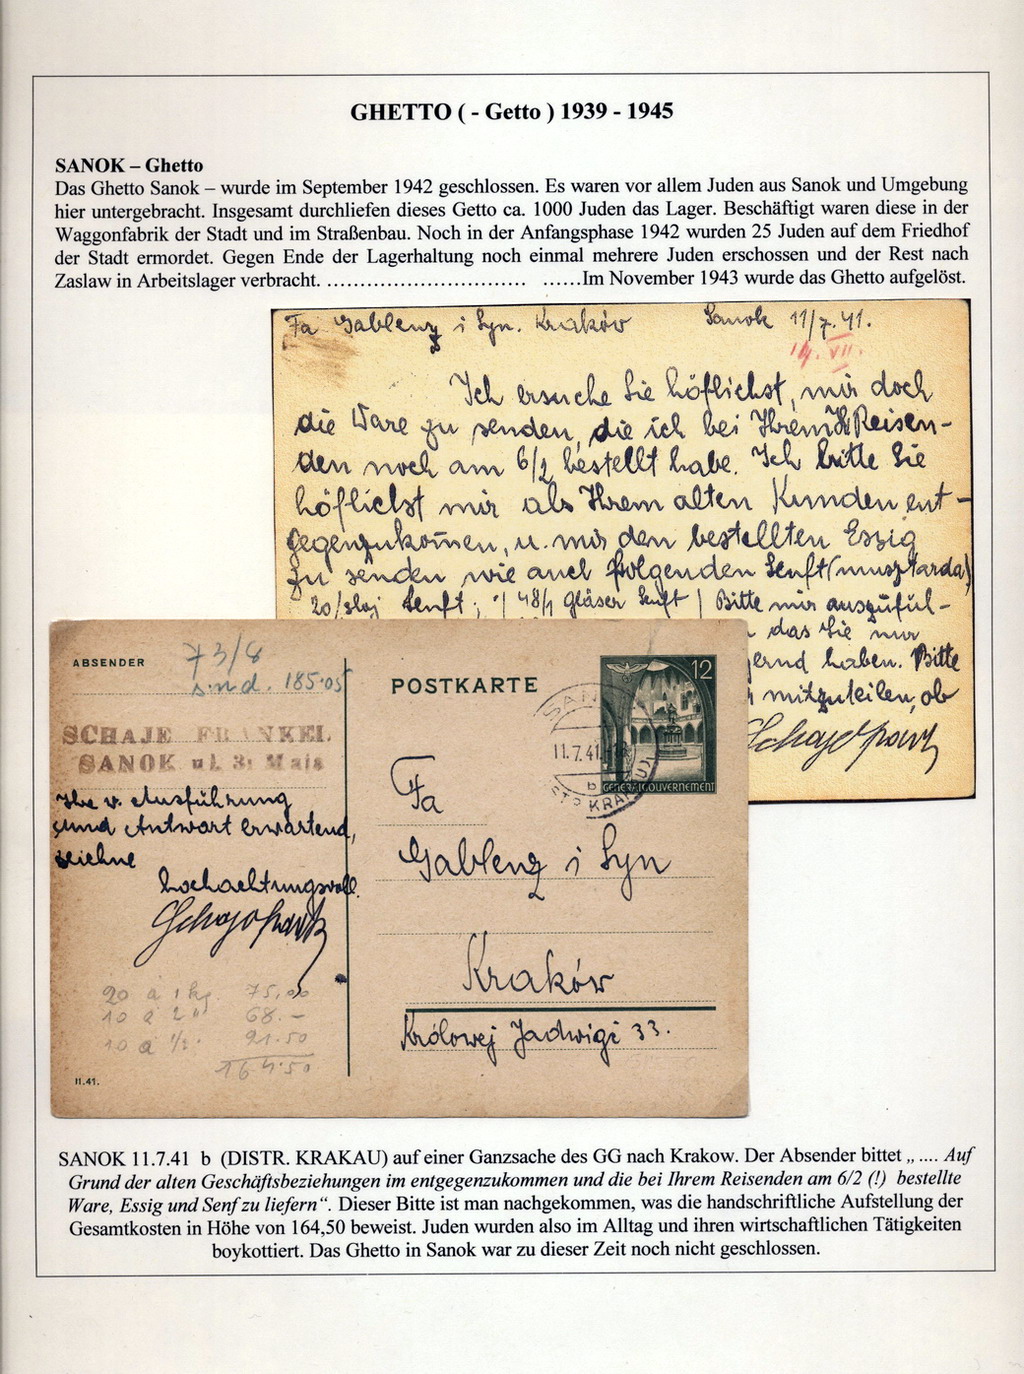 GHETTO ( - Getto ) 1939 - 1945
SANOK – Ghetto
Das Ghetto Sanok – wurde im September 1942 geschlossen. Es waren vor allem Juden aus Sanok und Umgebung
hier untergebracht. Insgesamt durchliefen dieses Getto ca. 1000 Juden das Lager. Beschäftigt waren diese in der
Waggonfabrik der Stadt und im Straßenbau. Noch in der Anfangsphase 1942 wurden 25 Juden auf dem Friedhof
der Stadt ermordet. Gegen Ende der Lagerhaltung noch einmal mehrere Juden erschossen und der Rest nach
Zaslaw in Arbeitslager verbracht. .............................. ......Im November 1943 wurde das Ghetto aufgelöst.
Fa Gablenz i Syn. Kraków Sanok 11/7.41.
14. VII.
Ich ersuche Sie höflichst, mir doch
die Ware zu senden, die ich bei Ihrem Reisen-
den noch am 6/2 bestellt habe. Ich bitte Sie
höflichst mir als Ihrem alten Kunden ent-
gegenzukom̄en, u. mir den bestellten Essig
zu senden wie auch folgenden Senft (musztarda)
20/słoj Senft; 48/1 gläser Senft / Bitte mir auszufül-
das Sie mir
gernd haben. Bitte
mitzuteilen, ob
ABSENDER
73/8
s.n.d. 185.05
SCHAJE FRANKEL
SANOK ul. 3. Maja
Ihre w. Ausführung
und Antwort erwartend,
zeichne
hochachtungsvoll.
20 à 1 kg. 75,00
10 à 2" 68.-
10 à ½. 21.50
164.50
II.41.
POSTKARTE
12
GENERALGOUVERNEMENT
SANOK
11.7.41
b
(DISTR. KRAKAU)
Fa
Gablenz i Syn
Kraków
Królowej Jadwigi 33.
SANOK 11.7.41 b (DISTR. KRAKAU) auf einer Ganzsache des GG nach Krakow. Der Absender bittet „ .... Auf
Grund der alten Geschäftsbeziehungen im entgegenzukommen und die bei Ihrem Reisenden am 6/2 (!) bestellte
Ware, Essig und Senf zu liefern“. Dieser Bitte ist man nachgekommen, was die handschriftliche Aufstellung der
Gesamtkosten in Höhe von 164,50 beweist. Juden wurden also im Alltag und ihren wirtschaftlichen Tätigkeiten
boykottiert. Das Ghetto in Sanok war zu dieser Zeit noch nicht geschlossen.